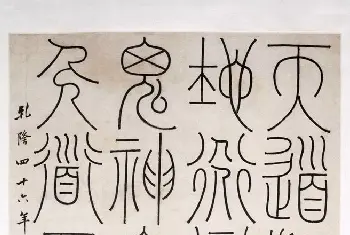 天道
地道
鬼神
人道
乾隆四十六年